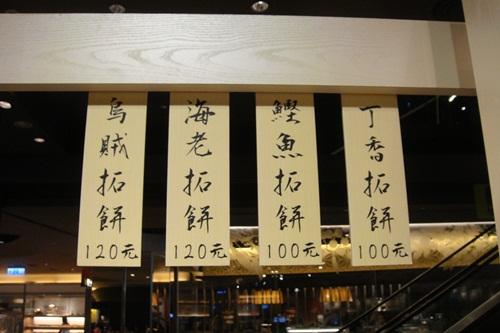 烏賊拓餅 120元
海老拓餅 120元
鰹魚拓餅 100元
丁香拓餅 100元